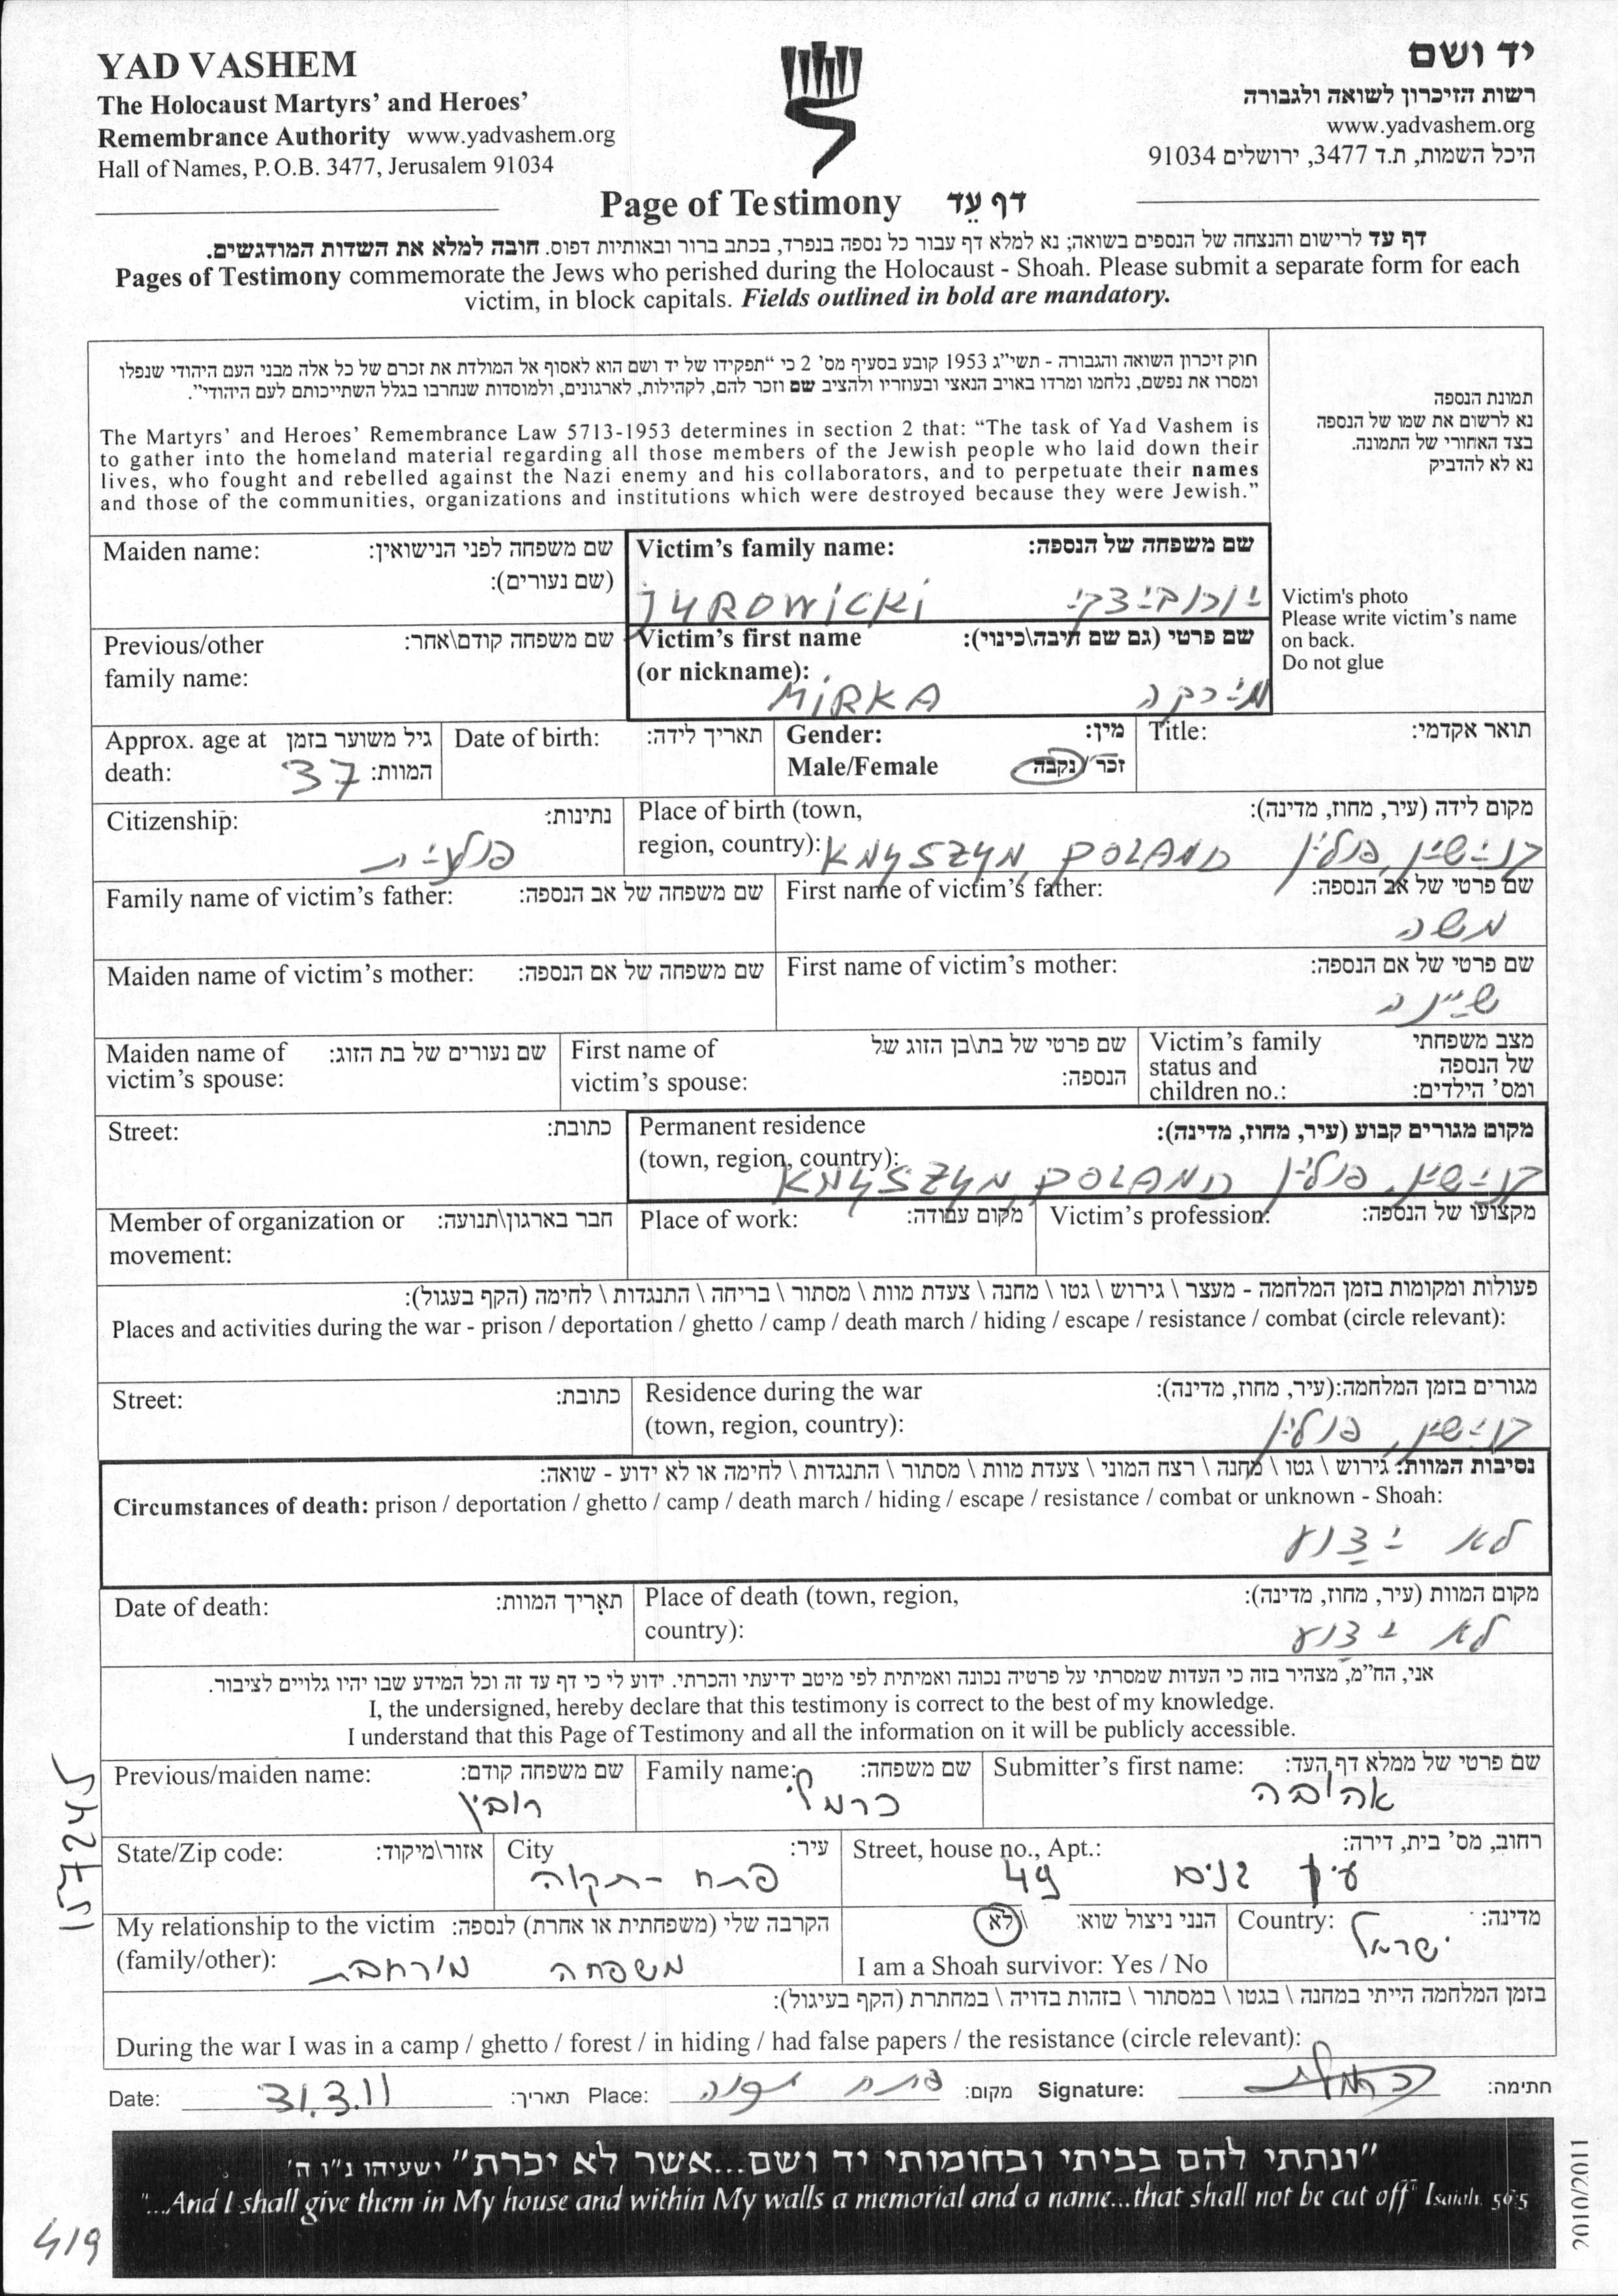 YAD VASHEM
The Holocaust Martyrs' and Heroes'
Remembrance Authority www.yadvashem.org
Hall of Names, P.O.B. 3477, Jerusalem 91034
יד ושם
רשות הזיכרון לשואה ולגבורה
www.yadvashem.org
היכל השמות, ת.ד 3477, ירושלים 91034
Page of Testimony דף עֵד
דף עד לרישום והנצחה של הנספים בשואה; נא למלא דף עבור כל נספה בנפרד, בכתב ברור ובאותיות דפוס. חובה למלא את השדות המודגשים.
Pages of Testimony commemorate the Jews who perished during the Holocaust - Shoah. Please submit a separate form for each
victim, in block capitals. Fields outlined in bold are mandatory.
חוק זיכרון השואה והגבורה - תשי"ג 1953 קובע בסעיף מס' 2 כי "תפקידו של יד ושם הוא לאסוף אל המולדת את זכרם של כל אלה מבני העם היהודי שנפלו
ומסרו את נפשם, נלחמו ומרדו באויב הנאצי ובעוזריו ולהציב שם וזכר להם, לקהילות, לארגונים, ולמוסדות שנחרבו בגלל השתייכותם לעם היהודי".
The Martyrs' and Heroes' Remembrance Law 5713-1953 determines in section 2 that: "The task of Yad Vashem is
to gather into the homeland material regarding all those members of the Jewish people who laid down their
lives, who fought and rebelled against the Nazi enemy and his collaborators, and to perpetuate their names
and those of the communities, organizations and institutions which were destroyed because they were Jewish."
תמונת הנספה
נא לרשום את שמו של הנספה
בצד האחורי של התמונה.
נא לא להדביק
Victim's photo
Please write victim's name
on back.
Do not glue
Maiden name: שם משפחה לפני הנישואין:
(שם נעורים):
Victim's family name: שם משפחה של הנספה:
JYROWICKI יורוביצקי
Previous/other שם משפחה קודם\אחר:
family name:
Victim's first name שם פרטי (גם שם חיבה\כינוי):
(or nickname):
MIRKA מירקה
Approx. age at גיל משוער בזמן
death: 37 המוות:
Date of birth: תאריך לידה:
Gender: מין:
Male/Female זכר/נקבה
Title: תואר אקדמי:
Citizenship: נתינות:
פולנית
Place of birth (town, מקום לידה (עיר, מחוז, מדינה):
region, country): KNYSZYN, POLAND קנישין, פולין
Family name of victim's father: שם משפחה של אב הנספה:
First name of victim's father: שם פרטי של אב הנספה:
משה
Maiden name of victim's mother: שם משפחה של אם הנספה:
First name of victim's mother: שם פרטי של אם הנספה:
שיינה
Maiden name of שם נעורים של בת הזוג:
victim's spouse:
First name of שם פרטי של בת\בן הזוג של
victim's spouse: הנספה:
Victim's family מצב משפחתי
status and של הנספה
children no.: ומס' הילדים:
Street: כתובת:
Permanent residence מקום מגורים קבוע (עיר, מחוז, מדינה):
(town, region, country):
KNYSZYN, POLAND קנישין, פולין
Member of organization or חבר בארגון\תנועה:
movement:
Place of work: מקום עבודה:
Victim's profession: מקצועו של הנספה:
פעולות ומקומות בזמן המלחמה - מעצר \ גירוש \ גטו \ מחנה \ צעדת מוות \ מסתור \ בריחה \ התנגדות \ לחימה (הקף בעגול):
Places and activities during the war - prison / deportation / ghetto / camp / death march / hiding / escape / resistance / combat (circle relevant):
Street: כתובת:
Residence during the war מגורים בזמן המלחמה:(עיר, מחוז, מדינה):
(town, region, country):
קנישין, פולין
נסיבות המוות: גירוש \ גטו \ מחנה \ רצח המוני \ צעדת מוות \ מסתור \ התנגדות \ לחימה או לא ידוע - שואה:
Circumstances of death: prison / deportation / ghetto / camp / death march / hiding / escape / resistance / combat or unknown - Shoah:
לא ידוע
Date of death: תאריך המוות:
Place of death (town, region, מקום המוות (עיר, מחוז, מדינה):
country):
לא ידוע
אני, הח"מ, מצהיר בזה כי העדות שמסרתי על פרטיה נכונה ואמיתית לפי מיטב ידיעתי והכרתי. ידוע לי כי דף עד זה וכל המידע שבו יהיו גלויים לציבור.
I, the undersigned, hereby declare that this testimony is correct to the best of my knowledge.
I understand that this Page of Testimony and all the information on it will be publicly accessible.
Previous/maiden name: שם משפחה קודם:
רובין
Family name: שם משפחה:
כרמלי
Submitter's first name: שם פרטי של ממלא דף העד:
אהובה
State/Zip code: אזור\מיקוד:
City עיר:
פתח-תקוה
Street, house no., Apt.: רחוב, מס' בית, דירה:
עין גנים 49
My relationship to the victim הקרבה שלי (משפחתית או אחרת) לנספה:
(family/other): משפחה מורחבת
הנני ניצול שוא: \לא
I am a Shoah survivor: Yes / No
Country: מדינה:
ישראל
בזמן המלחמה הייתי במחנה \ בגטו \ במסתור \ בזהות בדויה \ במחתרת (הקף בעיגול):
During the war I was in a camp / ghetto / forest / in hiding / had false papers / the resistance (circle relevant):
Date: 31.3.11 תאריך: Place: פתח תקוה מקום: Signature: חתימה:
"ונתתי להם בביתי ובחומותי יד ושם...אשר לא יכרת" ישעיהו נ"ו ה'
"...And I shall give them in My house and within My walls a memorial and a name...that shall not be cut off" Isaiah 56:5
157245
419
2010/2011